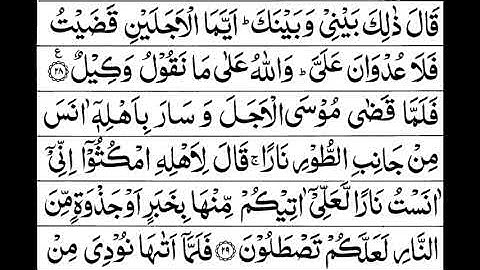 قَالَ ذٰلِكَ بَيْنِيْ وَبَيْنَكَ ؕ اَيَّمَا الْاَجَلَيْنِ قَضَيْتُ
فَلَا عُدْوَانَ عَلَيَّ ؕ وَاللّٰهُ عَلٰى مَا نَقُوْلُ وَكِيْلٌ ﴿۲۸﴾ ع
فَلَمَّا قَضٰى مُوْسَى الْاَجَلَ وَ سَارَ بِاَهْلِهٖۤ اٰنَسَ
مِنْ جَانِبِ الطُّوْرِ نَارًا ۚ قَالَ لِاَهْلِهِ امْكُثُوْۤا اِنِّيْۤ
اٰنَسْتُ نَارًا لَّعَلِّيْۤ اٰتِيْكُمْ مِّنْهَا بِخَبَرٍ اَوْ جَذْوَةٍ مِّنَ
النَّارِ لَعَلَّكُمْ تَصْطَلُوْنَ ﴿۲۹﴾ فَلَمَّاۤ اَتٰىهَا نُوْدِيَ مِنْ